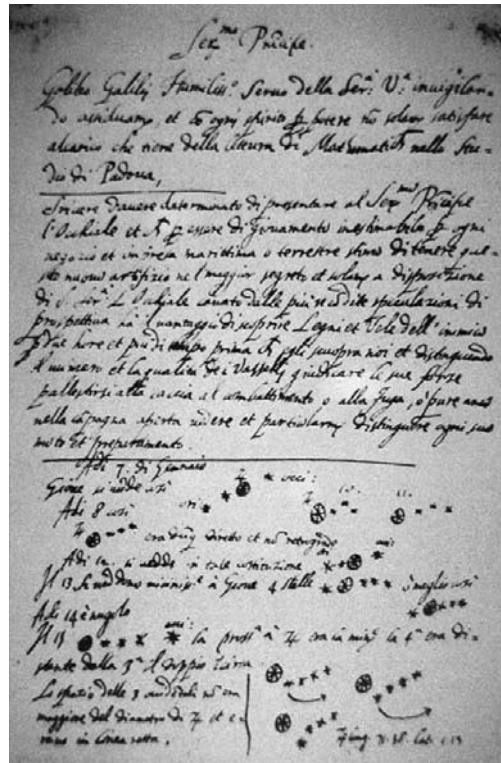 Ser.mo Principe.
Galileo Galilei Humiliss.o Servo della Ser.a V.a invigilan-
do assiduam.te et ogni spirito potere nõ solam satisfare
alcarico che tiene della lettura di Mathematich nello Stu-
dio di Padova,
Scrivere davere determinato di presentare al Ser.mo Principe
l'Occhiale et essere di giovamento inestimabile ogni
negozio et impresa marittima o terrestre stimo di tenere que-
sto nuovo artifizio nel maggior segreto et solam a disposizione
di S. Ser.a L'Occhiale cavato dalle più recõdite speculazioni di
prospettiva hà il vantaggio di scoprire Legni et Vele dell'inimico
due hore et più di tempo prima egli scuopra noi et distinguendo
il numero et la qualità dei Vasselli giudicare le sue forze
pallestirsi alla caccia al combattimento o alla fuga, ò pure anco
nella cãpagna aperta vedere et particolarm distinguere ogni suo
moto et preparamento.
Adì 7. di Gennaio
Giove si vede così
Adì 8 così
era dũq diretto et nõ retrogrado
Adì 12 si vedde in tale costituzione
Il 13 si veddono à Giove 4 stelle ò meglio così
Adì 14 è nugolo
Il 15 la pross.a à era la min la 4.a era di-
stante dalla 3.a il doppio
Lo spazio delle 3 occidẽtali nõ era
maggiore del diametro di et e-
rano in linea retta.